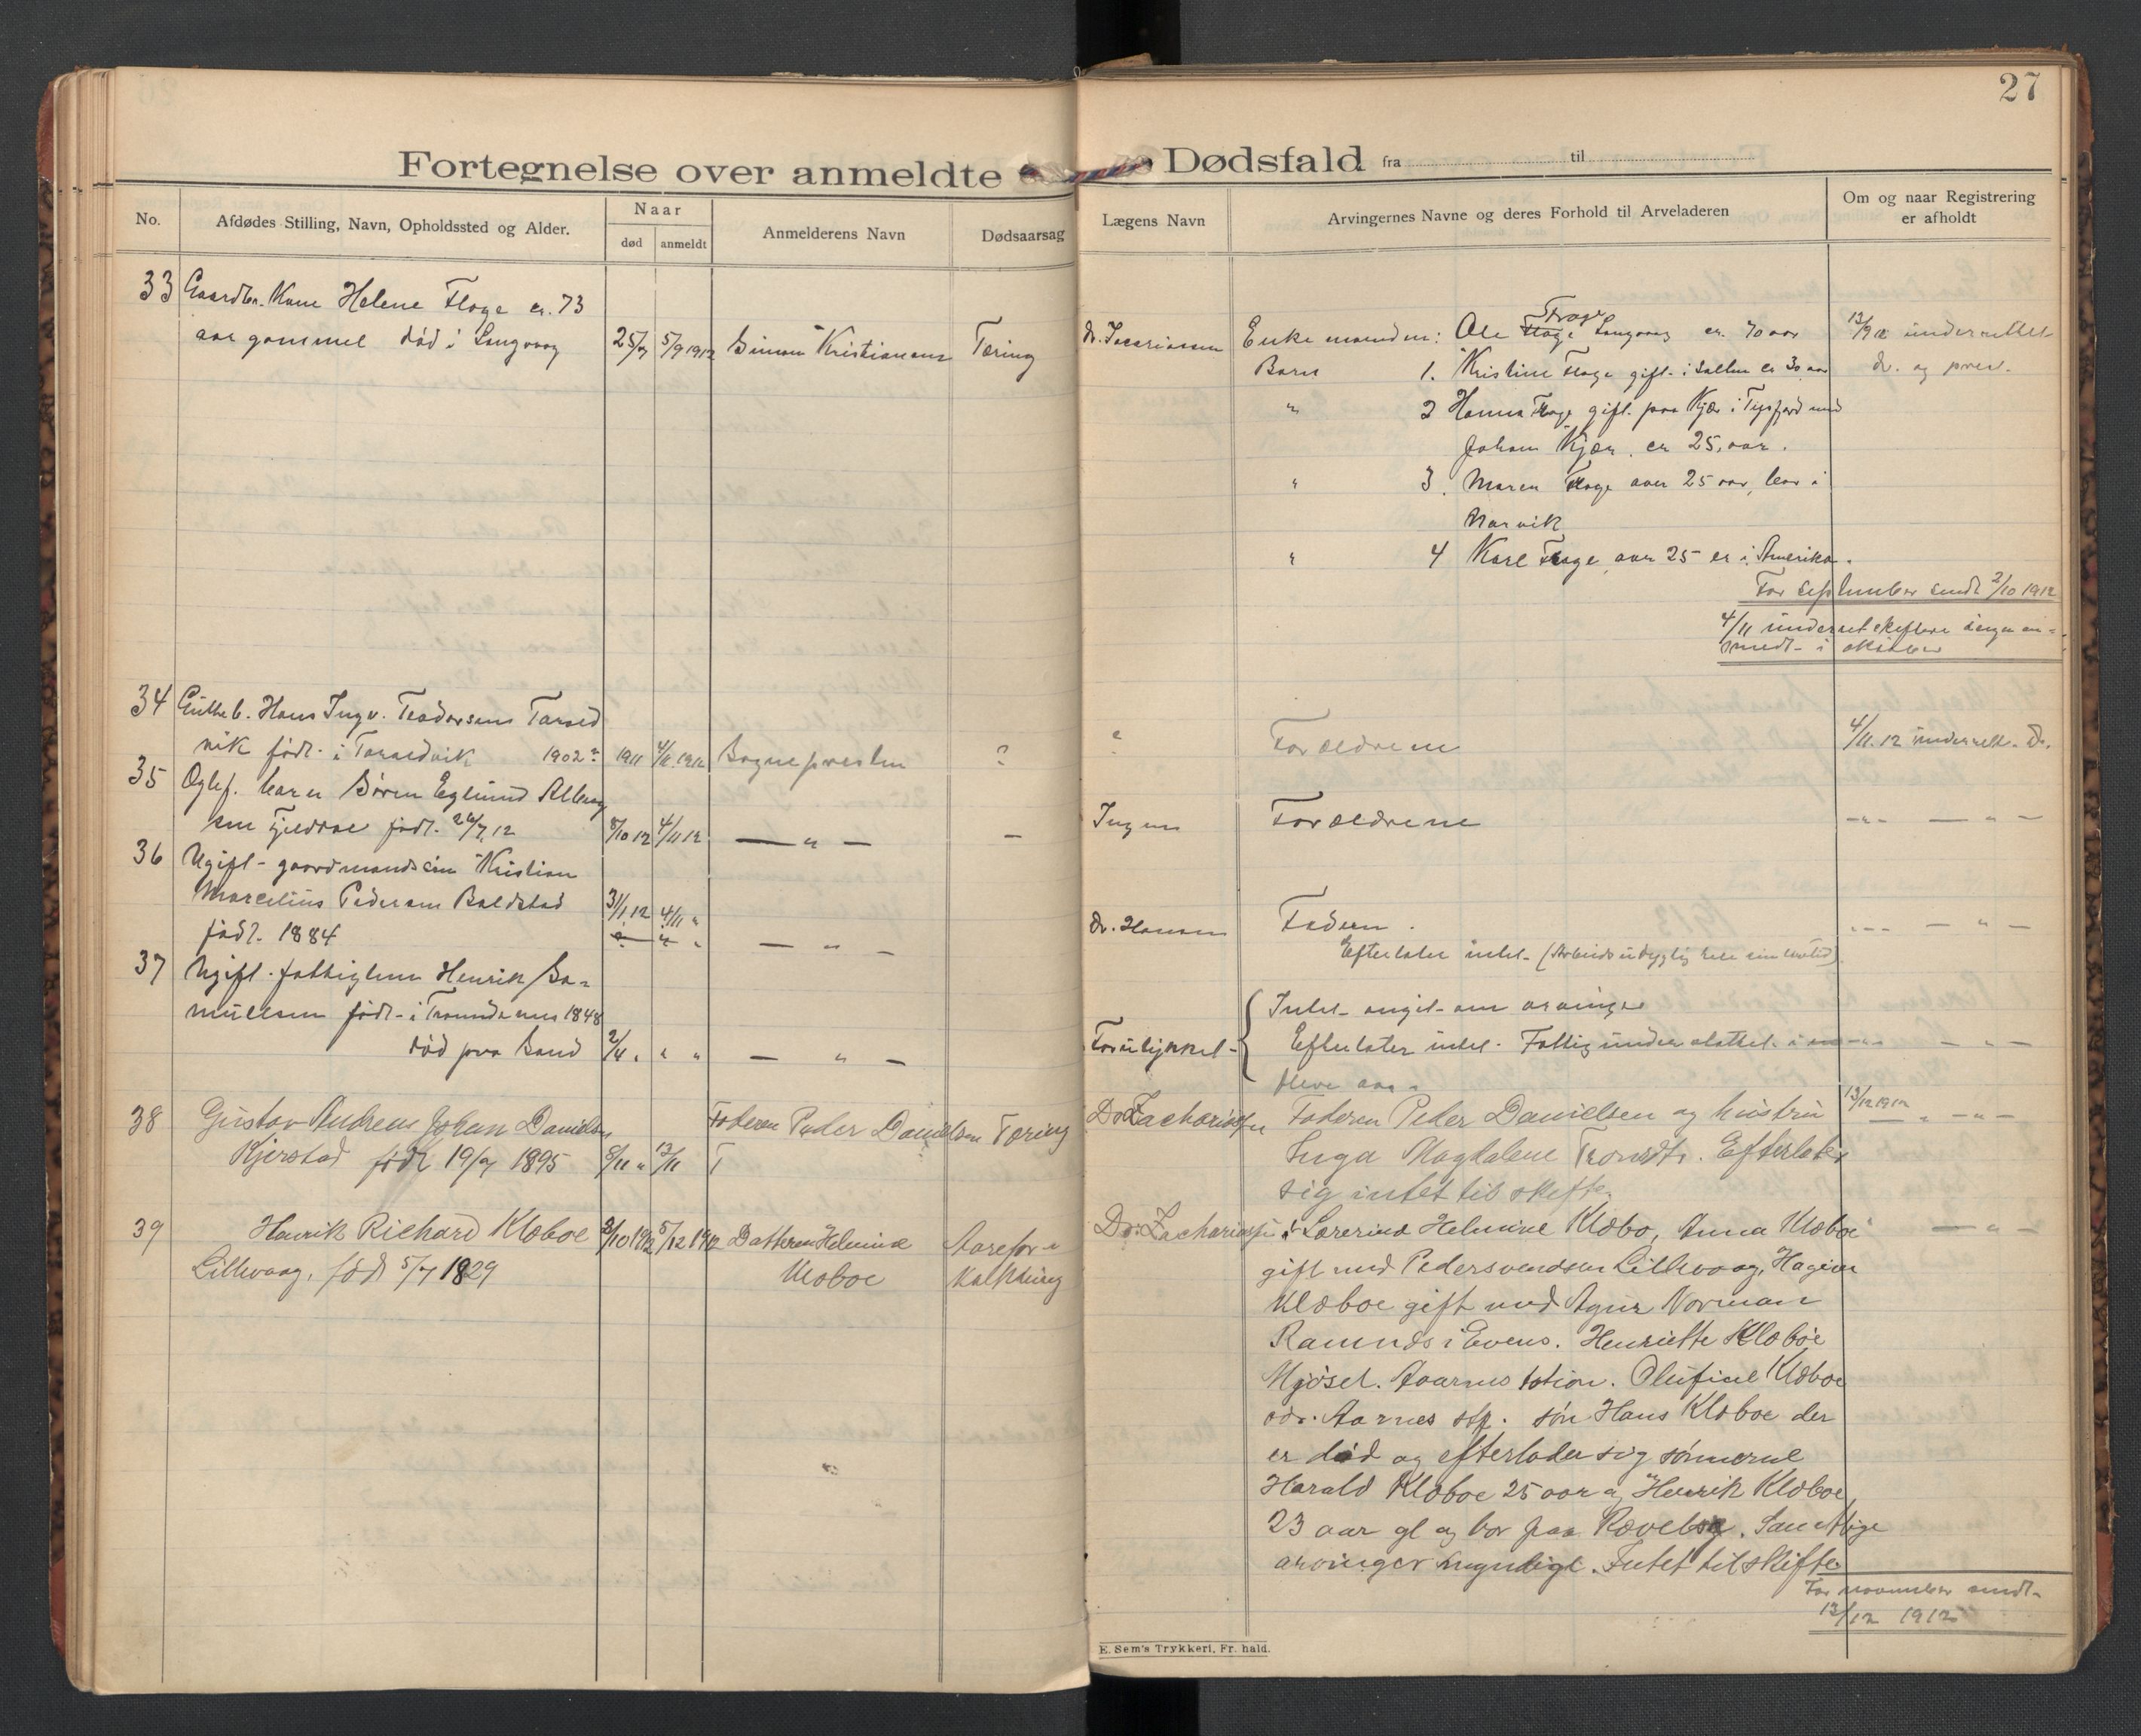 27
Fortegnelse over anmeldte Dødsfald fra til
No.
Afdødes Stilling, Navn, Opholdssted og Alder.
Naar
død
anmeldt
Anmelderens Navn
Dødsaarsag
Lægens Navn
Arvingernes Navne og deres Forhold til Arveladeren
Om og naar Registrering
er afholdt
33 Gaardbr. Kone Helene Floge ca. 73
aar gammel død i Langvaag 25/7 5/9 1912 Simon Kristiansen Tæring
Enkemanden: Ole Floge Langvaag ca. 70 aar
Barn 1. Kristine Floge gift i Salten ca 30 aar
" 2 Hanna Floge gift paa Kjær i Tysfjord med
Johan Kjær. ca 25, aar.
" 3. Maren Floge over 25 aar, bor i
Narvik
" 4 Karl Floge, over 25 er i Amerika.
12/9 12 underrettet
For september sendt 2/10 1912
4/11 underret skifteret ingen an-
meldt i oktober
34 Hans Ingv. Teodorsen
født i 1902 1911 4/11.1912 Sognepresten ?
" Forældrene 4/11.12 underrett.
35 Søren Eglund
født 26/7.12 8/10 12 4/11 12 — " — —
Ingen Forældrene --- — " —
36 Ugift gaardmandssøn Kristian
Marcelius Pedersen Boldstad
født. 1884 31/1 12 4/11 " — " —
Dr. Hansen Faderen.
Efterlater intet (Arbeidsudygtig hele sin levetid)
--- — " —
37 Ugift fattiglem Henrik Sa-
muelsen født i Trondenes 1848
død paa Sand 2/4 " " " — " —
Forulykket
Intet angit om arvinger
Efterlater intet. Fattigunderstøttet i
flere aar.
38 Gustav Andreas Johan Danielsen
Kjerstad født 19/7 1895 8/11 " 13/11
Faderen Peder Danielsen Tæring
Dr. Zachariassen Faderen Peder Danielsen og hustru
Inga Magdalene Trondts. Efterlater
sig intet til skifte.
13/12 1912 — " —
39 Henrik Richard Klæboe 3/10 1912 5/12 1912 Datteren Helmine Aarefor-
Lillevaag, født 5/7 1829 Klæboe kalkning
Dr. Zachariassen Lærerinde Helmine Klæbo, Anna Klæboe
gift med Pedersvendsen Lillevaag, Hagine
Klæboe gift med Norman
Ramnds i Evenes. Henriette Klæboe
Mjøsel. Aarnes station. Olufine Klæboe
adr. Aarnes stp. søn Hans Klæboe der
er død og efterlader sig sønnerne
Harald Klæboe 25 aar og Henrik Klæboe
23 aar gl og bor paa. Samtlige
arvinger myndige. Intet til skifte
— " —
For november sendt
13/12 1912
E. Sem's Trykkeri, Fr. hald.